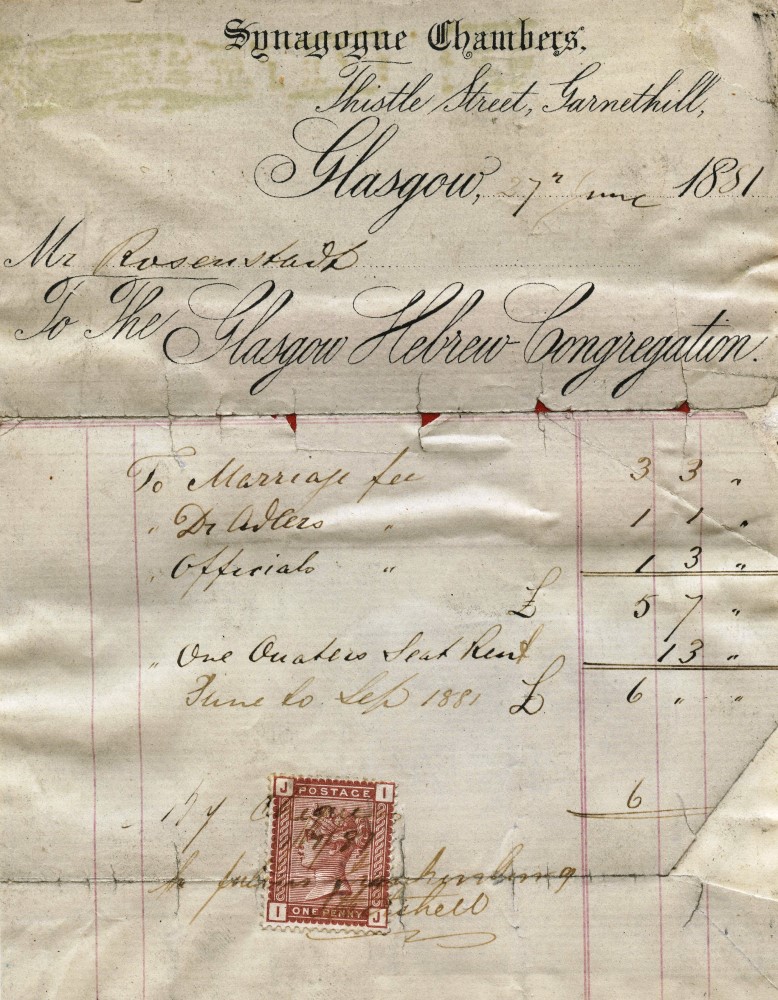 Synagogue Chambers,
Thistle Street, Garnethill,
Glasgow, 27th June 1881
Mr Rosenstadt
To The Glasgow Hebrew Congregation.
To Marriage fee 3 3 "
" Dr Adlers " 1 1 "
" Officials " 1 3 "
£ 5 7 "
" One Quaters Seat Rent 13 "
June to Sep 1881 £ 6 " "
By 6
J POSTAGE I
I ONE PENNY J